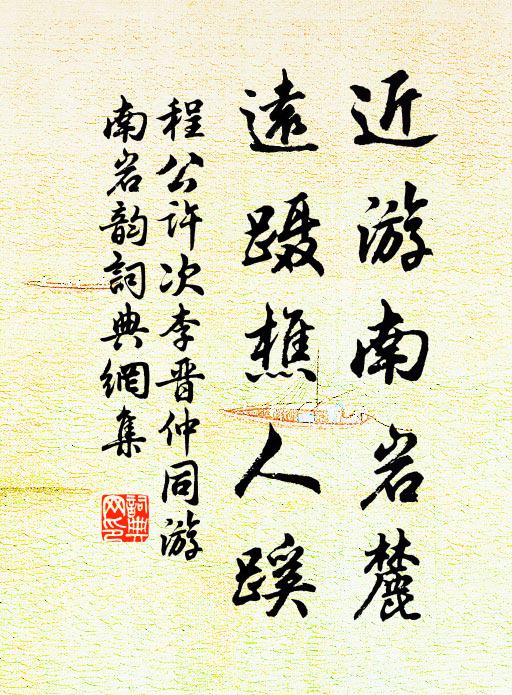 近游南岩麓
遠蹑樵人蹊
程公许次李晋仲同游
南岩韵詞典網集
詞典
网印